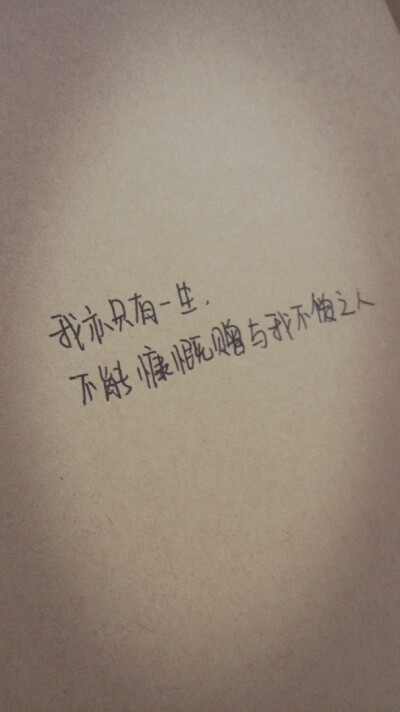 我亦只有一生.
不能慷慨赠与我不值之人